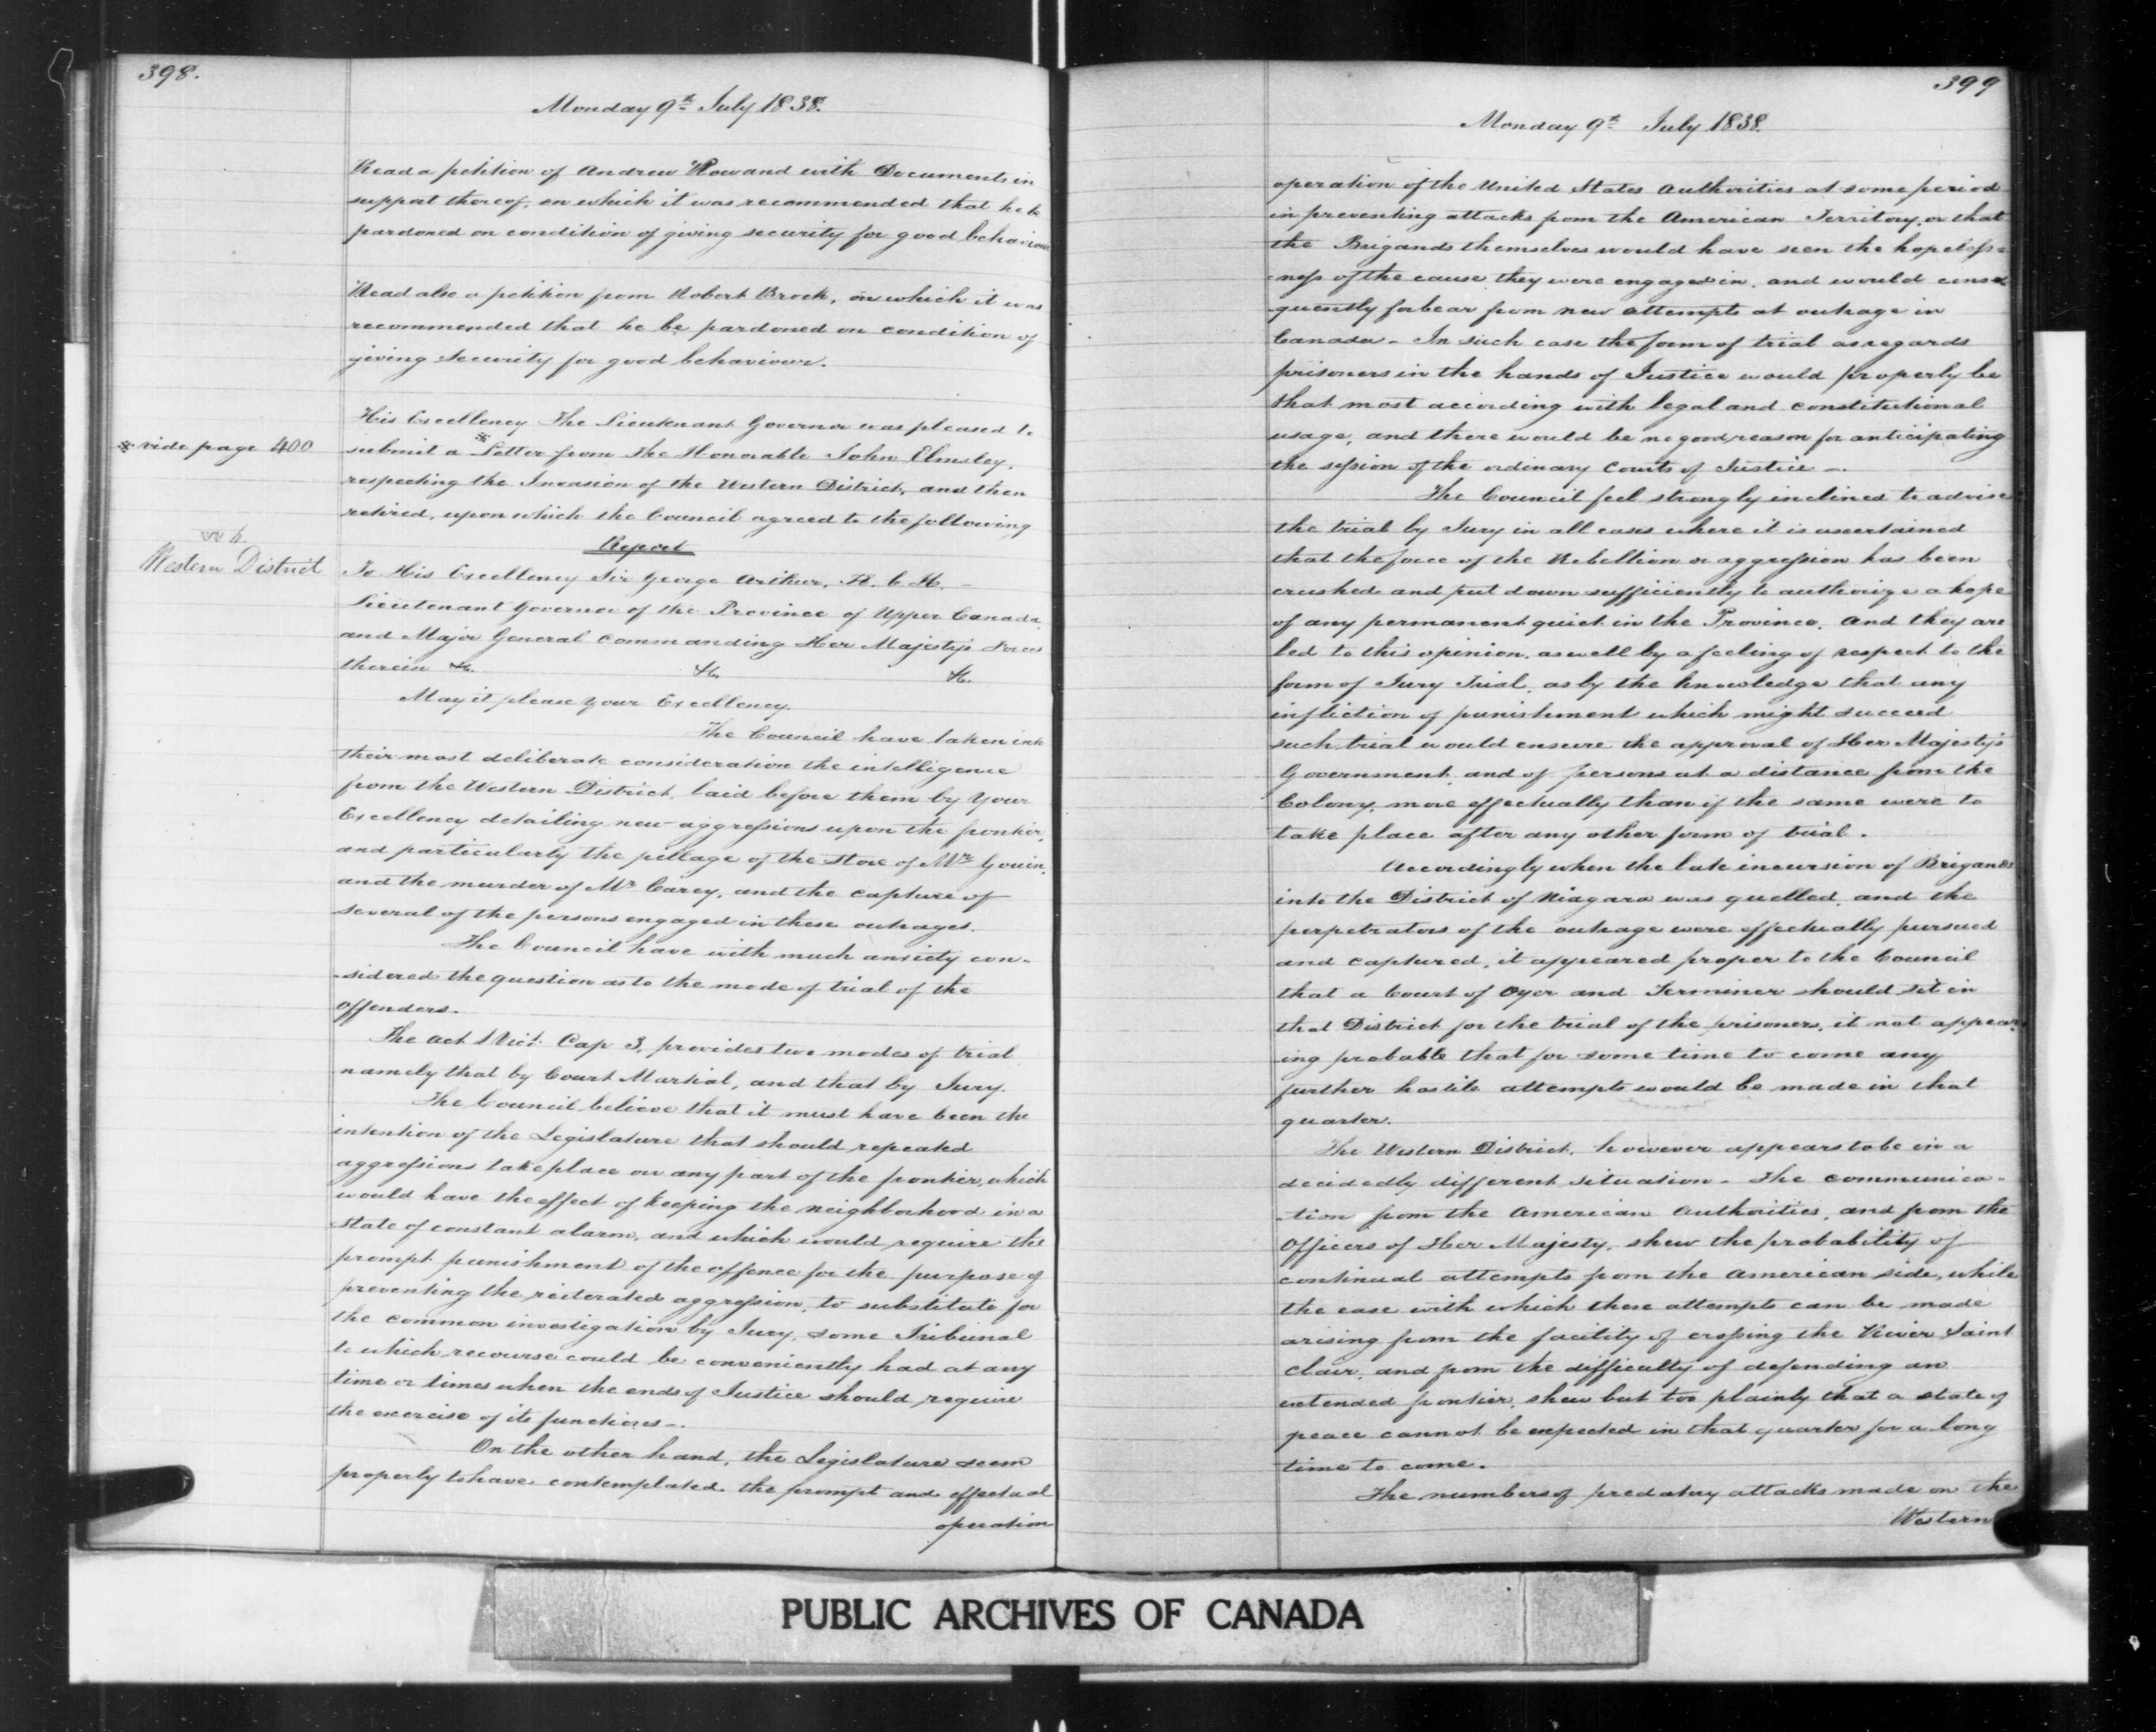 398.
Monday 9th July 1838.
Read a petition of Andrew Rowand with Documents in
support thereof, on which it was recommended that he be
pardoned on condition of giving security for good behaviour
Read also a petition from Robert Brock, on which it was
recommended that he be pardoned on condition of
giving Security for good behaviour.
His Excellency The Lieutenant Governor was pleased to
※ vide page 400
submit a ※ Letter from The Honorable John Elmsley,
respecting the Invasion of the Western District, and then
retired, upon which the Council agreed to the following
Report
Western District
To His Excellency Sir George Arthur, K. C. H. —
Lieutenant Governor of the Province of Upper Canada
and Major General Commanding Her Majesty's Forces
therein &c. &c. &c.
May it please your Excellency.
The Council have taken into
their most deliberate consideration the intelligence
from the Western District, laid before them by Your
Excellency detailing new aggressions upon the frontier,
and particularly the pillage of the store of Mr Gouin,
and the murder of Mr Carey, and the capture of
several of the persons engaged in these outrages.
The Council have with much anxiety con-
-sidered the question as to the mode of trial of the
offenders.
The Act 1 Vict: Cap 3, provides two modes of trial
namely that by Court Martial, and that by Jury.
The Council believe that it must have been the
intention of the Legislature that should repeated
aggressions take place on any part of the frontier, which
would have the effect of keeping the neighborhood in a
state of constant alarm, and which would require the
prompt punishment of the offence for the purpose of
preventing the reiterated aggression, to substitute for
the common investigation by Jury, some Tribunal
to which recourse could be conveniently had at any
time or times when the ends of Justice should require
the exercise of its functions —.
On the other hand, the Legislature seem
properly to have contemplated the prompt and effectual
operation
399
Monday 9th July 1838.
operation of the United States Authorities at some period
in preventing attacks from the American Territory, or that
the Brigands themselves would have seen the hopeless=
-ness of the cause they were engaged in, and would conse-
quently forbear from new attempts at outrage in
Canada – In such case the form of trial as regards
prisoners in the hands of Justice would properly be
that most according with legal and constitutional
usage, and there would be no good reason for anticipating
the session of the ordinary Courts of Justice —.
The Council feel strongly inclined to advise
the trial by Jury in all cases where it is ascertained
that the force of the Rebellion or aggression has been
crushed and put down sufficiently to authorize a hope
of any permanent quiet in the Province. And they are
led to this opinion, as well by a feeling of respect to the
form of Jury Trial, as by the knowledge that any
infliction of punishment which might succeed
such trial would ensure the approval of Her Majesty's
Government, and of persons at a distance from the
Colony, more effectually than if the same were to
take place after any other form of trial.
Accordingly when the late incursion of Brigands
into the District of Niagara was quelled, and the
perpetrators of the outrage were effectually pursued
and captured, it appeared proper to the Council
that a Court of Oyer and Terminer should sit in
that District for the trial of the prisoners, it not appear-
ing probable that for some time to come any
further hostile attempts would be made in that
quarter.
The Western District, however appears to be in a
decidedly different situation – The communica-
-tion from the American Authorities, and from the
Officers of Her Majesty, shew the probability of
continual attempts from the American side, while
the ease with which these attempts can be made
arising from the facility of crossing the River Saint
Clair, and from the difficulty of defending an
extended frontier, shew but too plainly that a state of
peace cannot be expected in that quarter for a long
time to come.
The numbers of predatory attacks made on the
Western
PUBLIC ARCHIVES OF CANADA